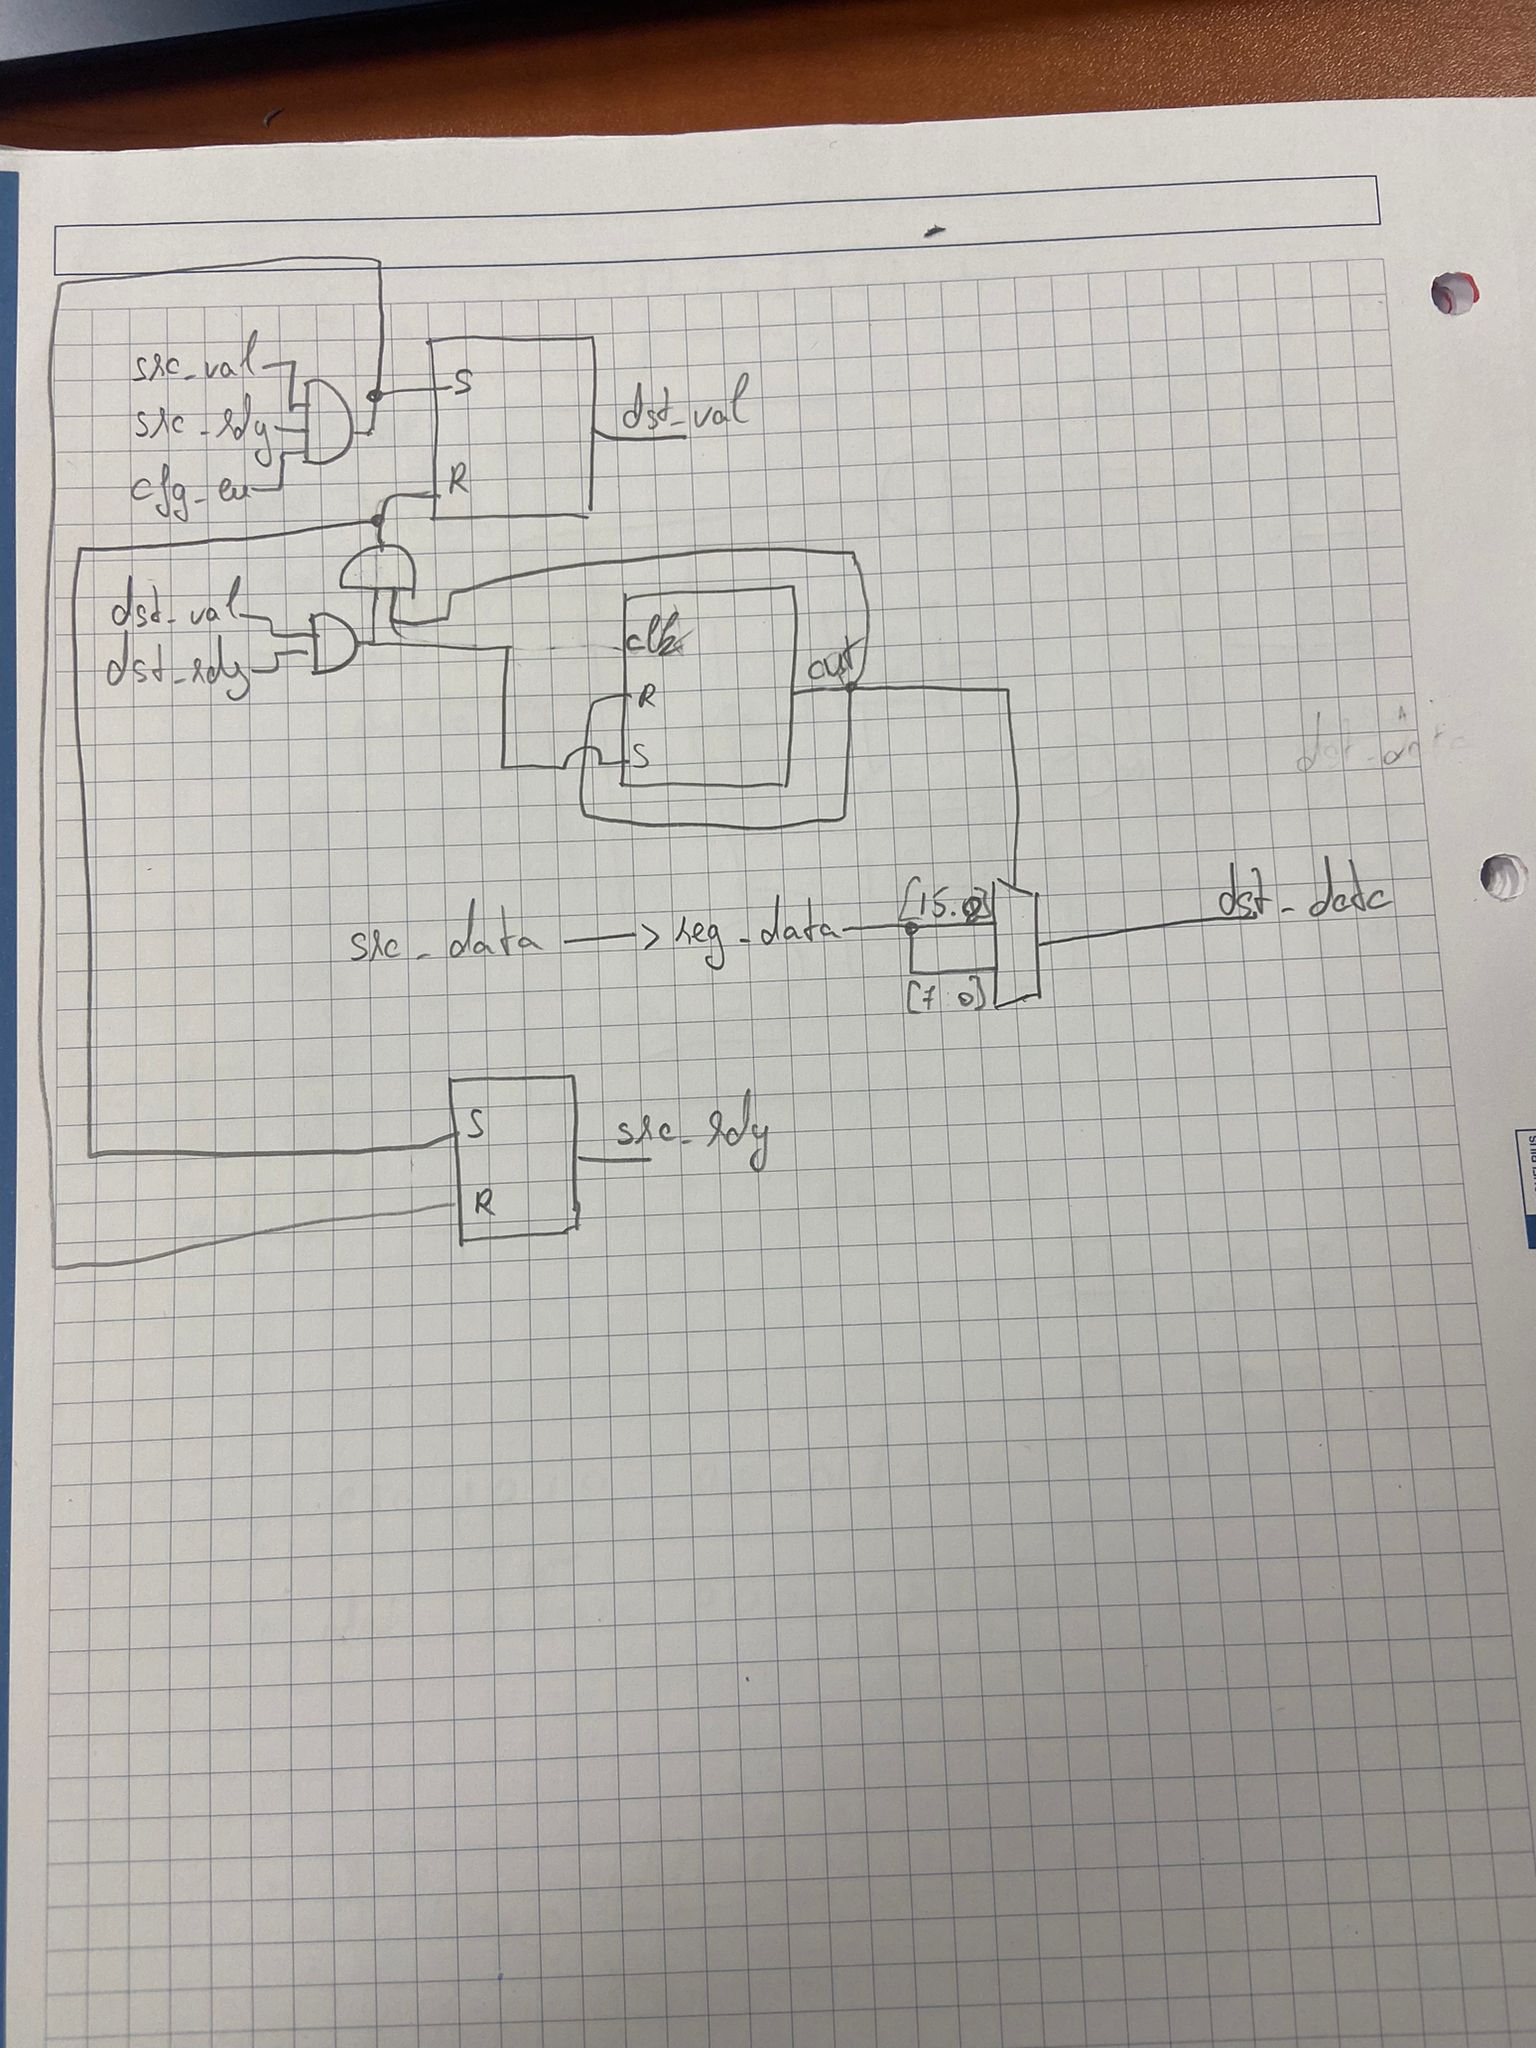 src_val
src_rdy
cfg_en
S
R
dst_val
dst_val
dst_rdy
clk
R
S
out
src_data → reg_data
[15:8]
[7:0]
dst_data
S
R
src_rdy